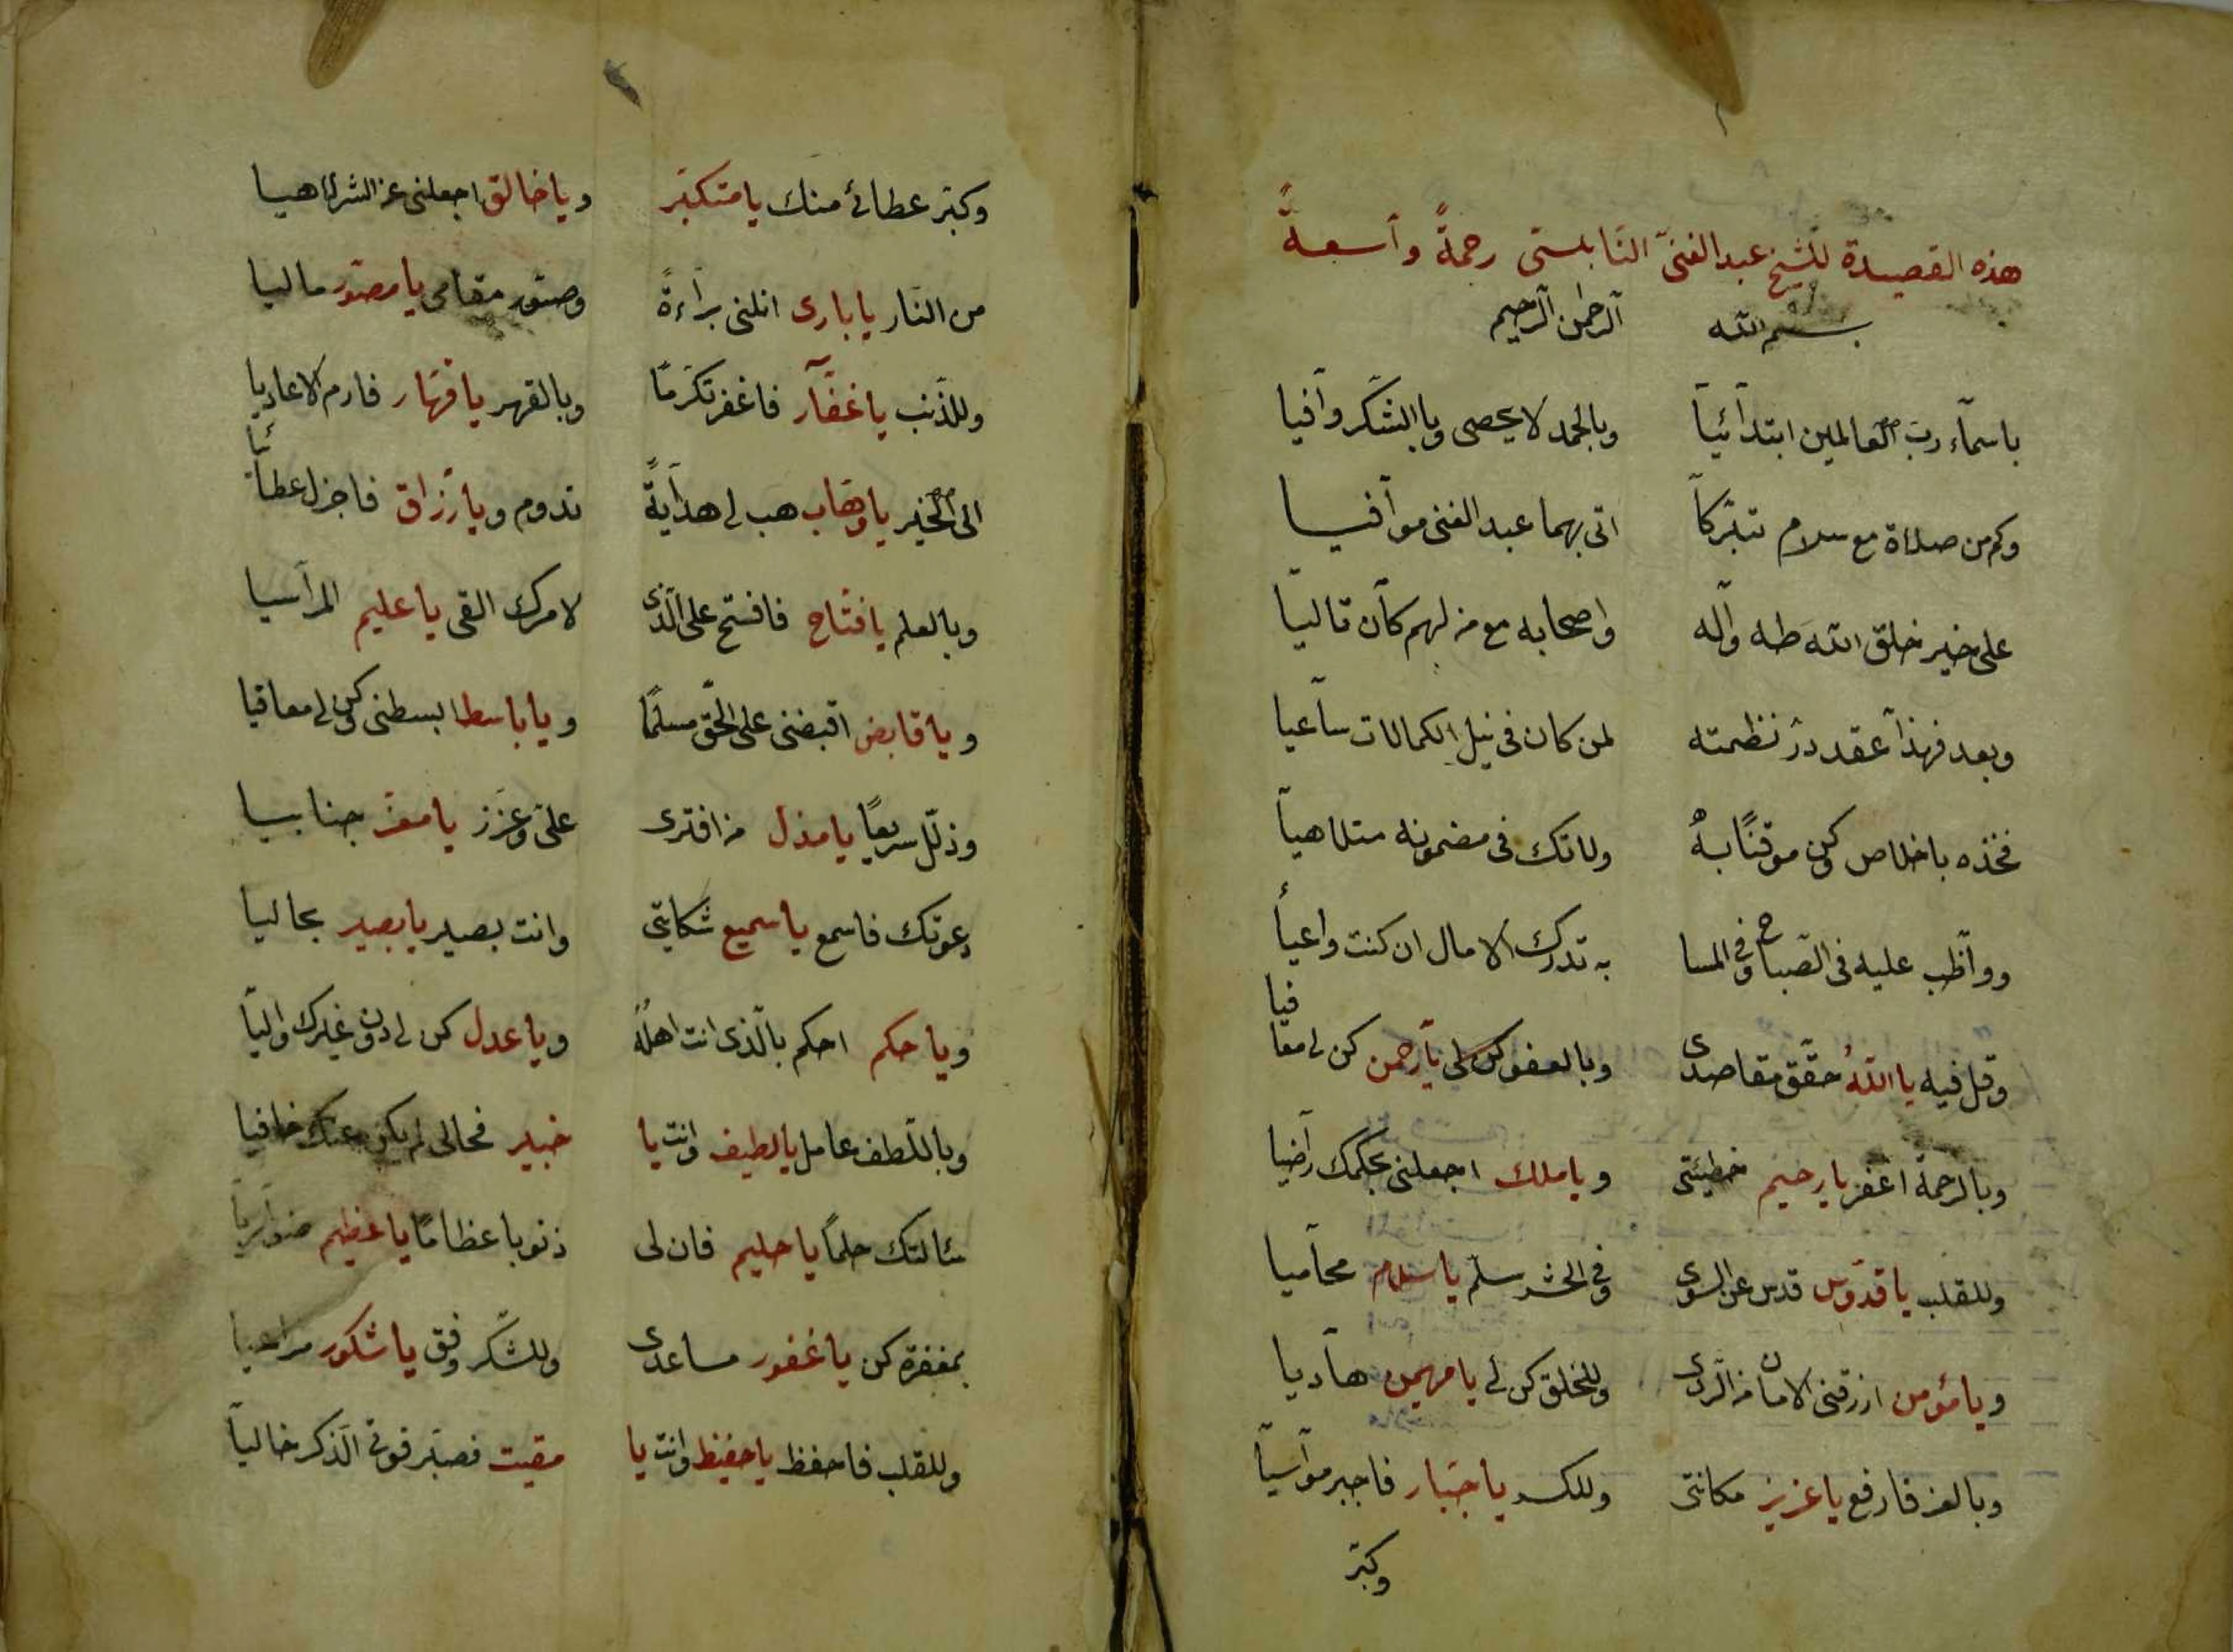 هذه القصيدة للشيخ عبد الغنىّ النّابلسى رحمةً وآسعةً
بسم الله الرّحمٰن الرّحيم
باسمآء ربّ العالمين ابتدآئيآ وبالحمد لا يحصى وبالشّكر وآفيا
وكم من صلاة مع سلام تبرّكاً اتى بهما عبد الغنى موآفيا
على خير خلق الله طه وآله واصحابه مع من لهم كآن تاليآ
وبعد فهذا عقد درّ نظمته لمن كان فى نيل الكمالات سآعيا
فخذه باخلاص وكن موقنًا به ولا تك فى مضمونه متلاهيآ
ووآظب عليه فى الصّباح وفى المسا به تدرك الامال ان كنت واعيآ
وقل فيه يا اللهُ حقّق مقاصدى وبالعفو كن لى يآرحمن كن لى معافيا
وبالرحمة اغفر يا رحيم خطيئتى ويا ملك اجعلنى بحكمك رآضيا
وللقلب يا قدّوس قدس عن السوى وفى الحشر سلّم يا سلام محآميا
ويا مؤمن ارزقنى الامان من الرّدى وللخلق كن لى يا مهيمن هآديا
وبالعز فارفع يا عزيز مكانتى وللكسر يا جبّار فاجبر موآسيآ
وكبّر
وكبّر عطائى منك يا متكبّر ويا خالق اجعلنى عن الشر لاهيا
من النّار يا بارى انلنى برآءةً وصوّر مقامى يا مصوّر ماليا
وللذّنب يا غفّآر فاغفر تكرّمًا وبالقهر يا قهّار فارم الاعاديا
الى الخير يا وهّاب هب لى هدآيةً تدوم ويا رزّاق فاجزل عطائيا
وبالعلم يا فتّاح فافتح على الّذى لامرك القى يا عليم المرآسيا
ويا قابض اقبضنى على الحقّ مسلمًا ويا باسط ابسطنى وكن لى معافيا
وذلّل سريعًا يا مذل من افترى علىّ وعزّز يا معزّ جنابيا
دعوتك فاسمع يا سميع شكايتى وانت بصير يا بصير بحاليا
ويا حكم احكم بالّذى انت اهله ويا عدل كن لى دون غيرك واليآ
وباللّطف عامل يا لطيف وانت يا خبير فحالى لم يكن عنك خافيا
سئالتك حلمًا يا حليم فان لى ذنوبا عظامًا يا عظيم ضوآريآ
بمغفرة كن يا غفور مساعدى وللشّكر وفق يا شكور مراعيا
وللقلب فاحفظ يا حفيظ وانت يا مقيت فصيّر قوتى الّذكر خاليآ